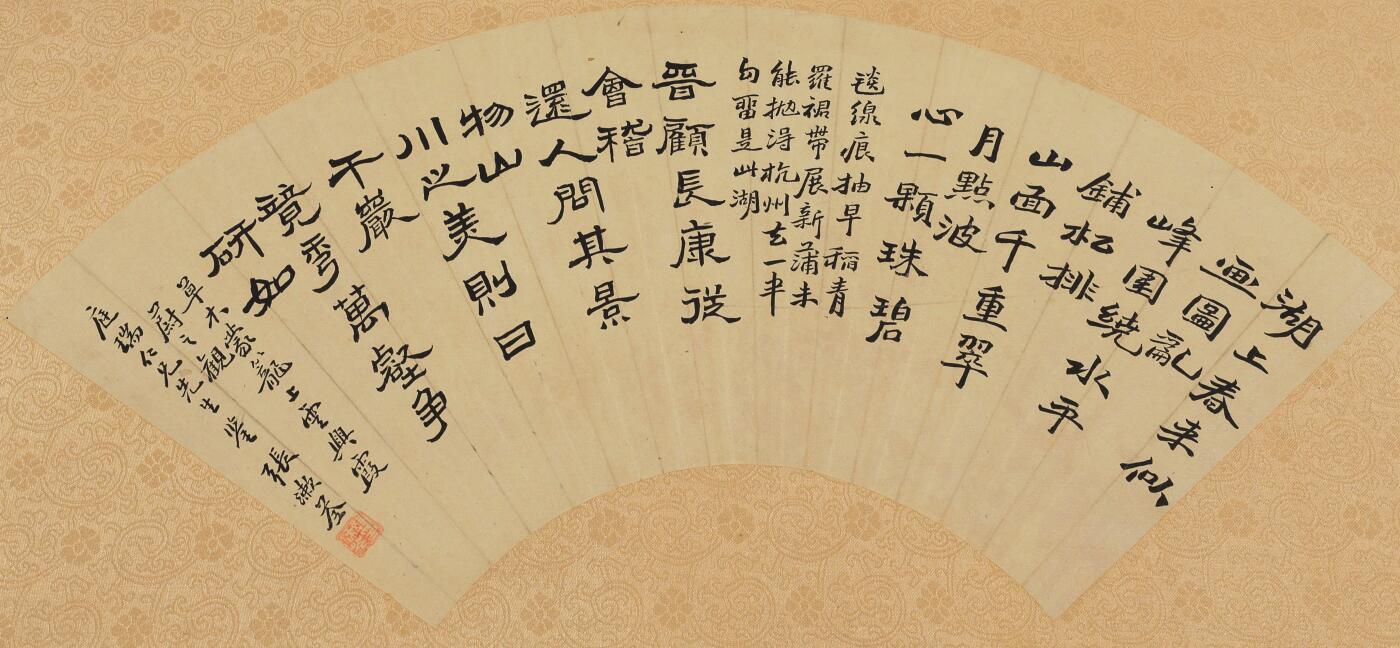 湖上春来似
画圖亂
峰圍繞水平
鋪松排
山面千重翠
月點波
心一顆珠碧
毯線痕抽早稻青
羅裙帶展新蒲未
能抛得杭州去一半
勾畱是此湖
晉顧長康從
會稽
還人問其景
物山
川之美則曰
千巖
競秀萬壑争
如
草木蒙籠上雲興霞
蔚之觀
庭瑞仁兄先生鑒 張漱荃